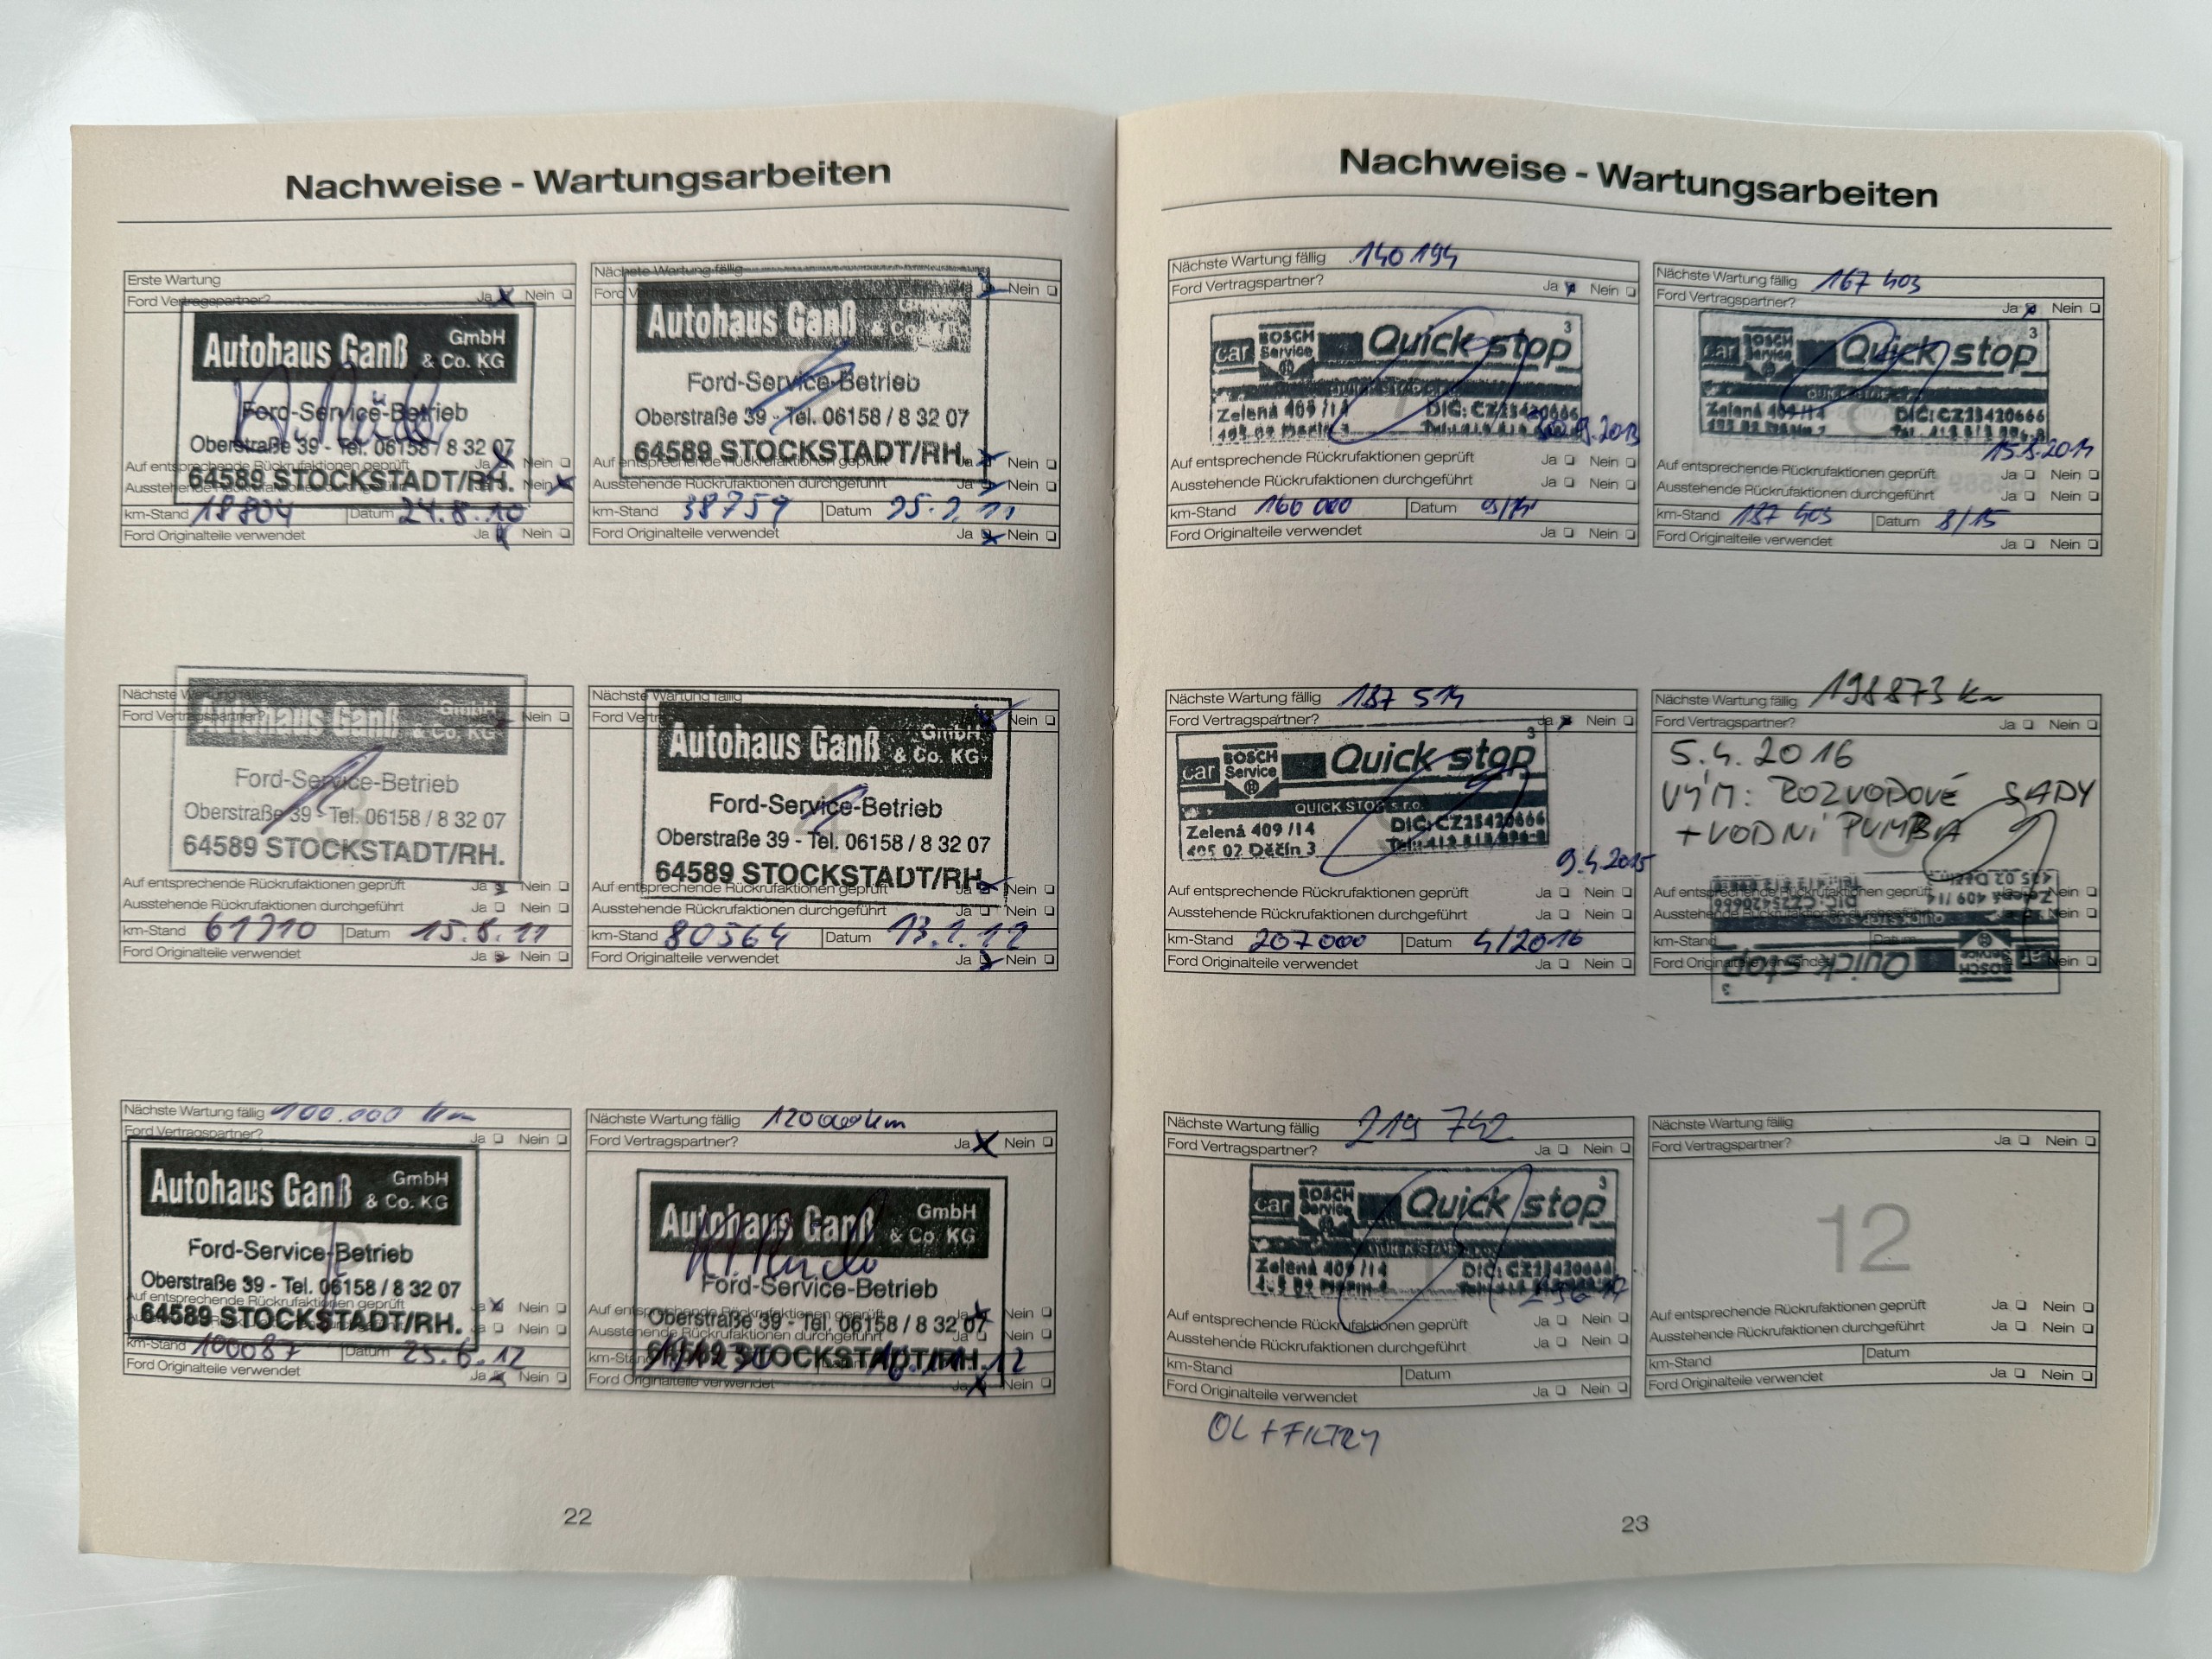 Nachweise - Wartungsarbeiten
Erste Wartung
Ford Vertragspartner? Ja Nein
Autohaus Ganß GmbH & Co. KG
Ford-Service-Betrieb
Oberstraße 39 - Tel. 06158 / 8 32 07
64589 STOCKSTADT/RH.
Auf entsprechende Rückrufaktionen geprüft Ja Nein
Ausstehende Rückrufaktionen durchgeführt Nein
km-Stand 18804 Datum 24.8.10
Ford Originalteile verwendet Ja Nein
Nächste Wartung fällig
Ford Nein
Autohaus Ganß GmbH & Co. KG
Ford-Service-Betrieb
Oberstraße 39 - Tel. 06158 / 8 32 07
64589 STOCKSTADT/RH.
Auf entsprechende Rückrufaktionen geprüft Ja Nein
Ausstehende Rückrufaktionen durchgeführt Ja Nein
km-Stand 38759 Datum 25.2.11
Ford Originalteile verwendet Ja Nein
Nächste Wartung fällig
Ford Vertragspartner? Nein
Autohaus Ganß GmbH & Co. KG
Ford-Service-Betrieb
Oberstraße 39 - Tel. 06158 / 8 32 07
64589 STOCKSTADT/RH.
3
Auf entsprechende Rückrufaktionen geprüft Ja Nein
Ausstehende Rückrufaktionen durchgeführt Ja Nein
km-Stand 61710 Datum 15.8.11
Ford Originalteile verwendet Ja Nein
Nächste Wartung fällig
Ford Nein
Autohaus Ganß GmbH & Co. KG
Ford-Service-Betrieb
4
Oberstraße 39 - Tel. 06158 / 8 32 07
64589 STOCKSTADT/RH.
Auf entsprechende Rückrufaktionen geprüft Ja Nein
Ausstehende Rückrufaktionen durchgeführt Ja Nein
km-Stand 80564 Datum 13.1.12
Ford Originalteile verwendet Ja Nein
Nächste Wartung fällig 100.000 km
Ford Vertragspartner? Ja Nein
Autohaus Ganß GmbH & Co. KG
Ford-Service-Betrieb
Oberstraße 39 - Tel. 06158 / 8 32 07
Auf entsprechende Rückrufaktionen geprüft Ja Nein
64589 STOCKSTADT/RH. Ja Nein
km-Stand 100087 Datum 25.6.12
Ford Originalteile verwendet Ja Nein
Nächste Wartung fällig 120000 km
Ford Vertragspartner? Ja Nein
Autohaus Ganß GmbH & Co. KG
Ford-Service-Betrieb
Auf entsprechende Rückrufaktionen geprüft Ja Nein
Oberstraße 39 - Tel. 06158 / 8 32 07
Ausstehende Rückrufaktionen durchgeführt Ja Nein
64589 STOCKSTADT/RH.
km-Stand
Ford Originalteile verwendet Ja Nein
22
Nachweise - Wartungsarbeiten
Nächste Wartung fällig 140 194
Ford Vertragspartner? Ja Nein
car BOSCH Service Quick stop 3
Zelená 409/14 DIČ: CZ25420666
Auf entsprechende Rückrufaktionen geprüft Ja Nein
Ausstehende Rückrufaktionen durchgeführt Ja Nein
km-Stand 160 000 Datum 9/14
Ford Originalteile verwendet Ja Nein
Nächste Wartung fällig 167 403
Ford Vertragspartner? Ja Nein
car BOSCH Service Quick stop 3
Zelená 409/14 DIČ: CZ25420666
15.8.2014
Auf entsprechende Rückrufaktionen geprüft Ja Nein
Ausstehende Rückrufaktionen durchgeführt Ja Nein
km-Stand 187 403 Datum 8/15
Ford Originalteile verwendet Ja Nein
Nächste Wartung fällig 187 514
Ford Vertragspartner? Ja Nein
car BOSCH Service Quick stop 3
QUICK STOP s.r.o.
Zelená 409/14 DIČ: CZ25420666
405 02 Děčín 3
9.4.2015
Auf entsprechende Rückrufaktionen geprüft Ja Nein
Ausstehende Rückrufaktionen durchgeführt Ja Nein
km-Stand 207000 Datum 4/2016
Ford Originalteile verwendet Ja Nein
Nächste Wartung fällig 198873 km
Ford Vertragspartner? Ja Nein
5.4.2016
VÝM: ROZVODOVÉ SADY
+ VODNÍ PUMPA
10
Auf entsprechende Rückrufaktionen geprüft Nein
Ausstehende Nein
km-Stand Datum
Ford Originalteile verwendet Nein
405 02 Děčín 3
Zelená 409/14 DIČ: CZ25420666
car BOSCH Service Quick stop
3
Nächste Wartung fällig 219 742
Ford Vertragspartner? Ja Nein
car BOSCH Service Quick stop 3
Zelená 409/14 DIČ: CZ25420666
Auf entsprechende Rückrufaktionen geprüft Ja Nein
Ausstehende Rückrufaktionen durchgeführt Ja Nein
km-Stand Datum
Ford Originalteile verwendet Ja Nein
OL + FILTRY
Nächste Wartung fällig
Ford Vertragspartner? Ja Nein
12
Auf entsprechende Rückrufaktionen geprüft Ja Nein
Ausstehende Rückrufaktionen durchgeführt Ja Nein
km-Stand Datum
Ford Originalteile verwendet Ja Nein
23